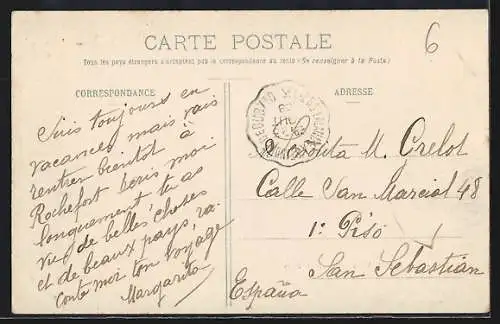 CARTE POSTALE
Tous les pays étrangers n'acceptent pas la correspondance au recto (Se renseigner à la Poste)
CORRESPONDANCE
ADRESSE
6
Suis toujours en
vacances, mais vais
rentrer bientôt à
Rochefort écris moi
longuement tu as
vu de belles choses
et de beaux pays, ra-
conte moi ton voyage
Margarita
M. Crelot
Calle San Marcial 48
1º Piso
San Sebastián
España